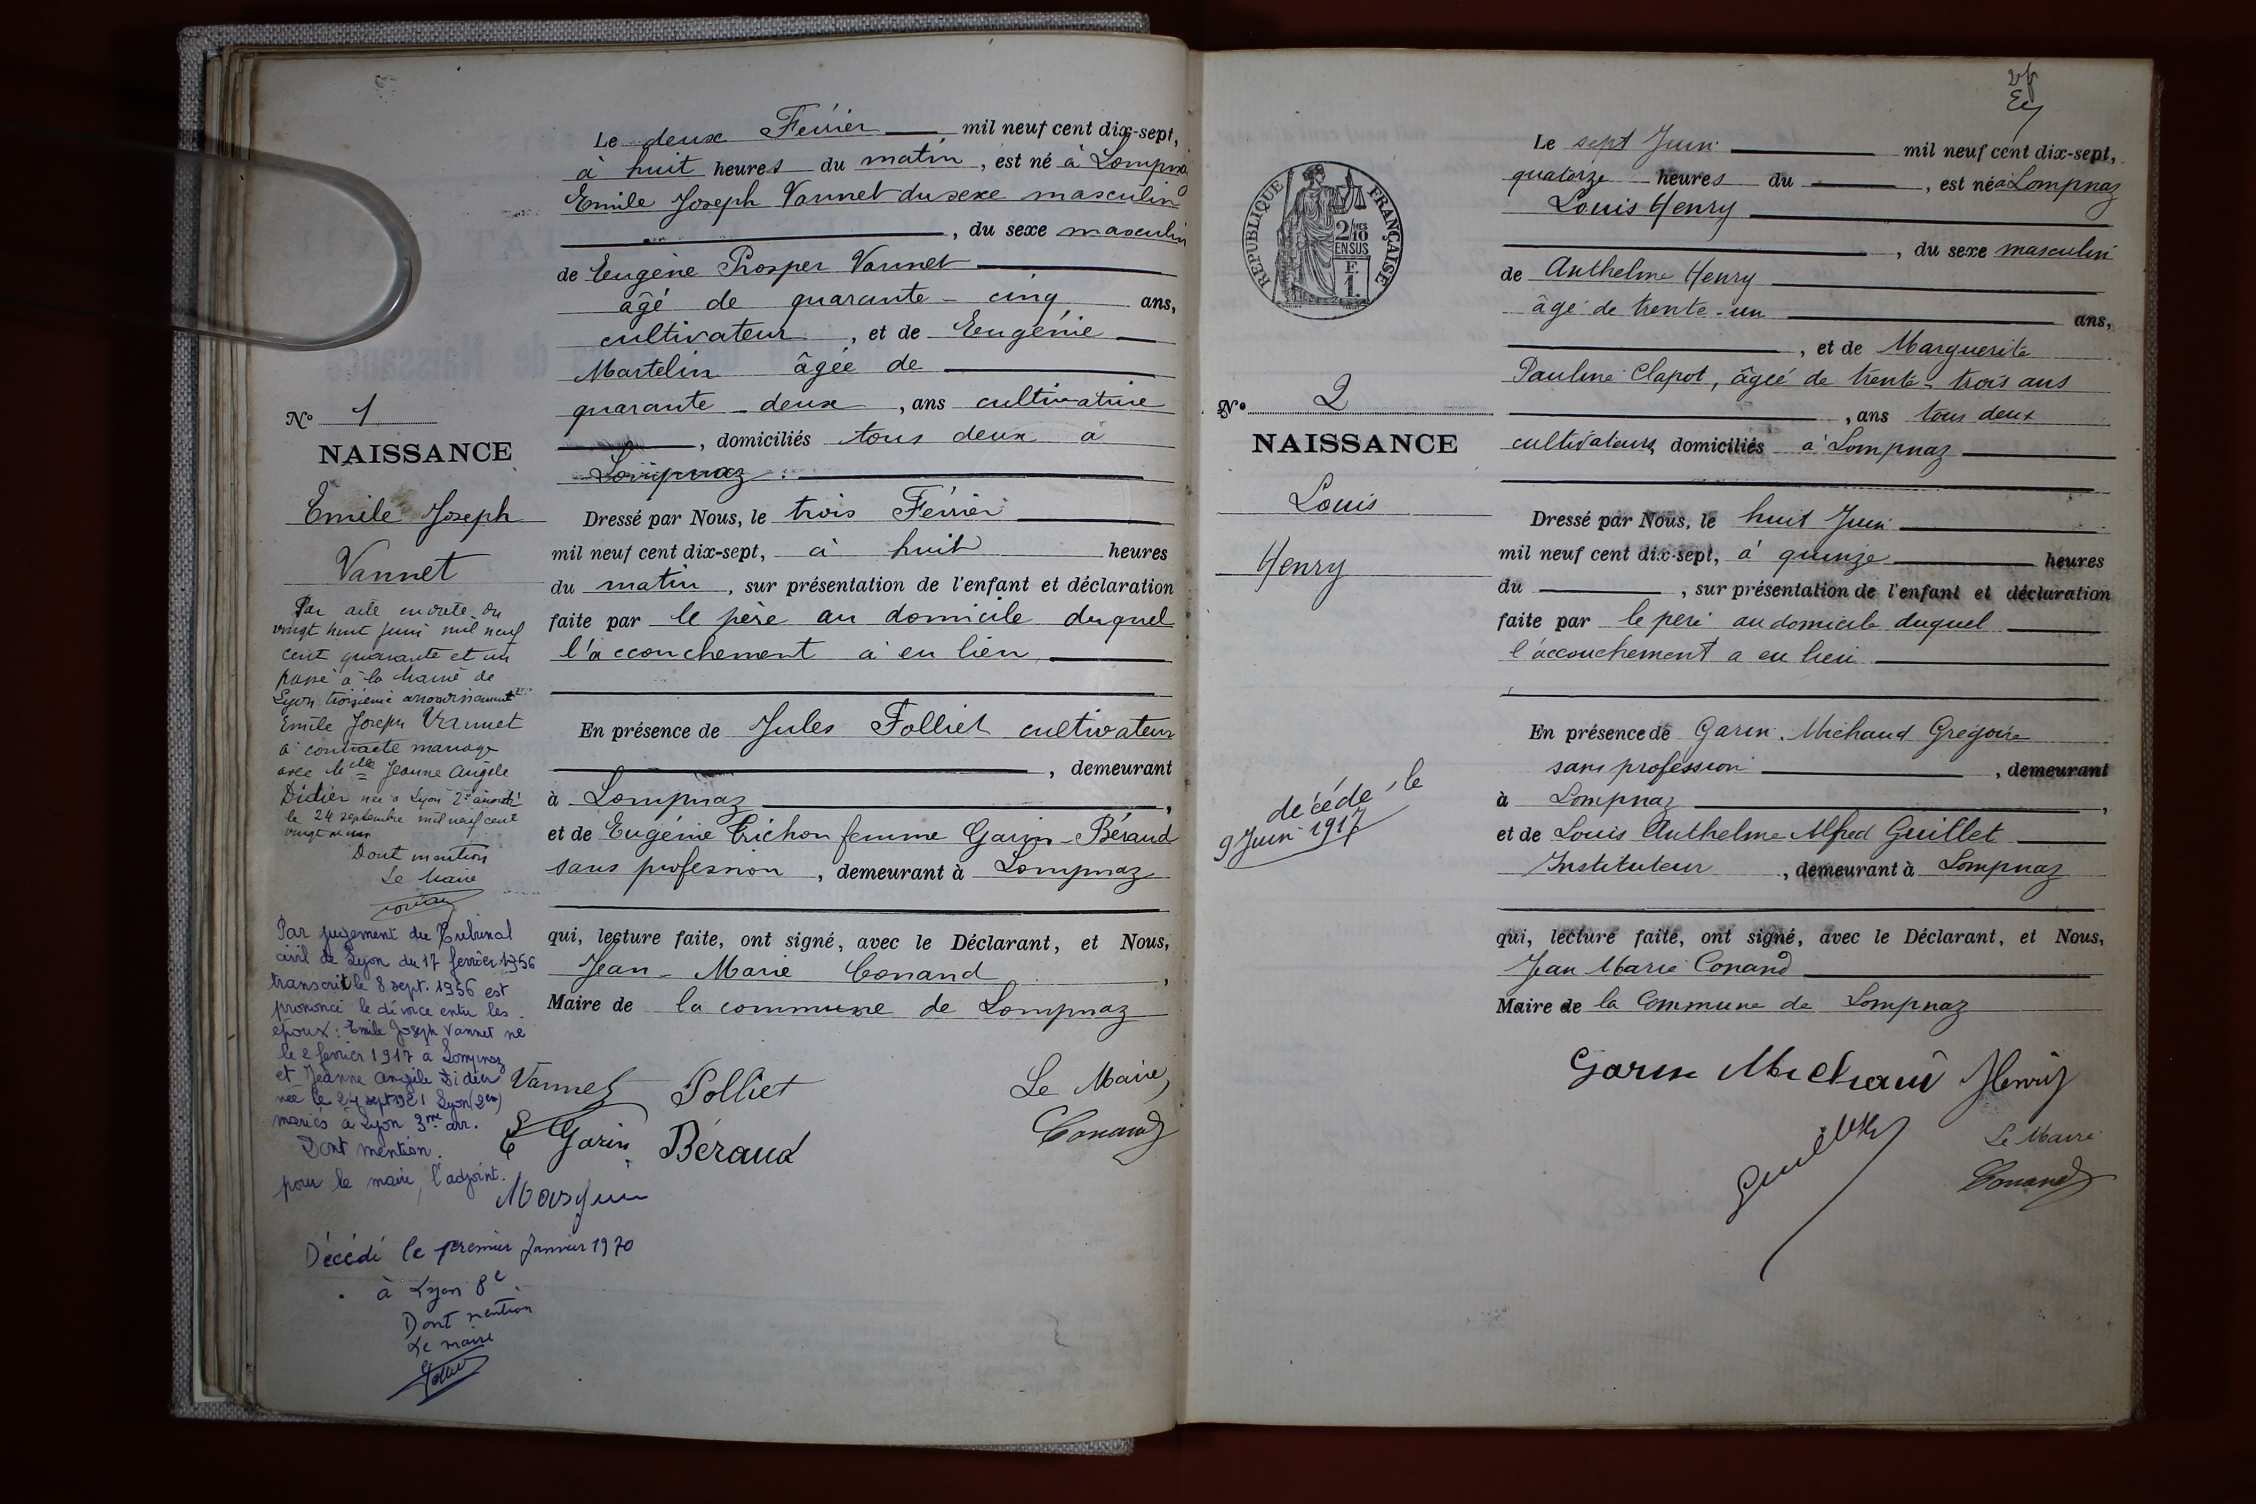 Le deux Février mil neuf cent dix-sept,
à huit heures du matin, est né à Lompnaz
Emile Joseph Vannet du sexe masculin
, du sexe masculin
de Eugène Prosper Vannet
âgé de quarante-cinq ans,
cultivateur, et de Eugénie
Martelin âgée de
quarante-deux, ans cultivatrice
, domiciliés tous deux à
Lompnaz
Dressé par Nous, le trois Février
mil neuf cent dix-sept, à huit heures
du matin, sur présentation de l'enfant et déclaration
faite par le père au domicile duquel
l'accouchement a eu lieu
En présence de Jules Folliet cultivateur
, demeurant
à Lompnaz,
et de Eugénie Trichon femme Garin-Béraud
sans profession, demeurant à Lompnaz
qui, lecture faite, ont signé, avec le Déclarant, et Nous,
Jean-Marie Conand,
Maire de la commune de Lompnaz
Vannet Folliet Le Maire
E Garin Béraud Conand
N° 1
NAISSANCE
Emile Joseph
Vannet
Par acte en date du
vingt huit juin mil neuf
cent quarante et un
passé à la mairie de
Lyon troisième arrondissement
Emile Joseph Vannet
a contracté mariage
avec Melle Jeanne Angèle
Didier née à Lyon 2e arrondt
le 24 septembre mil neuf cent
vingt et un
Dont mention
Le Maire
Par jugement du Tribunal
civil de Lyon du 17 février 1956
transcrit le 8 sept. 1956 est
prononcé le divorce entre les
époux: Emile Joseph Vannet né
le 2 février 1917 à Lompnaz
et Jeanne Angèle Didier
née le 24 sept 1921 Lyon (2em)
mariés à Lyon 3me arr.
Dont mention.
pour le maire, l'adjoint.
Décédé le premier Janvier 1970
à Lyon 8e
Dont mention
Le maire
Le sept Juin mil neuf cent dix-sept,
quatorze heures du, est né à Lompnaz
Louis Henry
, du sexe masculin
de Anthelme Henry
âgé de trente-un ans,
, et de Marguerite
Pauline Clapot, âgée de trente-trois ans
, ans tous deux
cultivateurs, domiciliés à Lompnaz
Dressé par Nous, le huit Juin
mil neuf cent dix-sept, à quinze heures
du, sur présentation de l'enfant et déclaration
faite par le père au domicile duquel
l'accouchement a eu lieu
En présence de Garin-Michaud Grégoire
sans profession, demeurant
à Lompnaz,
et de Louis Anthelme Alfred Guillet
Instituteur, demeurant à Lompnaz
qui, lecture faite, ont signé, avec le Déclarant, et Nous,
Jean Marie Conand
Maire de la Commune de Lompnaz
Garin Michaud Henry
Guillet Le Maire
Conand
REPUBLIQUE FRANÇAISE
2/10
EN SUS
F.
1.
N° 2
NAISSANCE
Louis
Henry
décédé le
9 Juin 1917